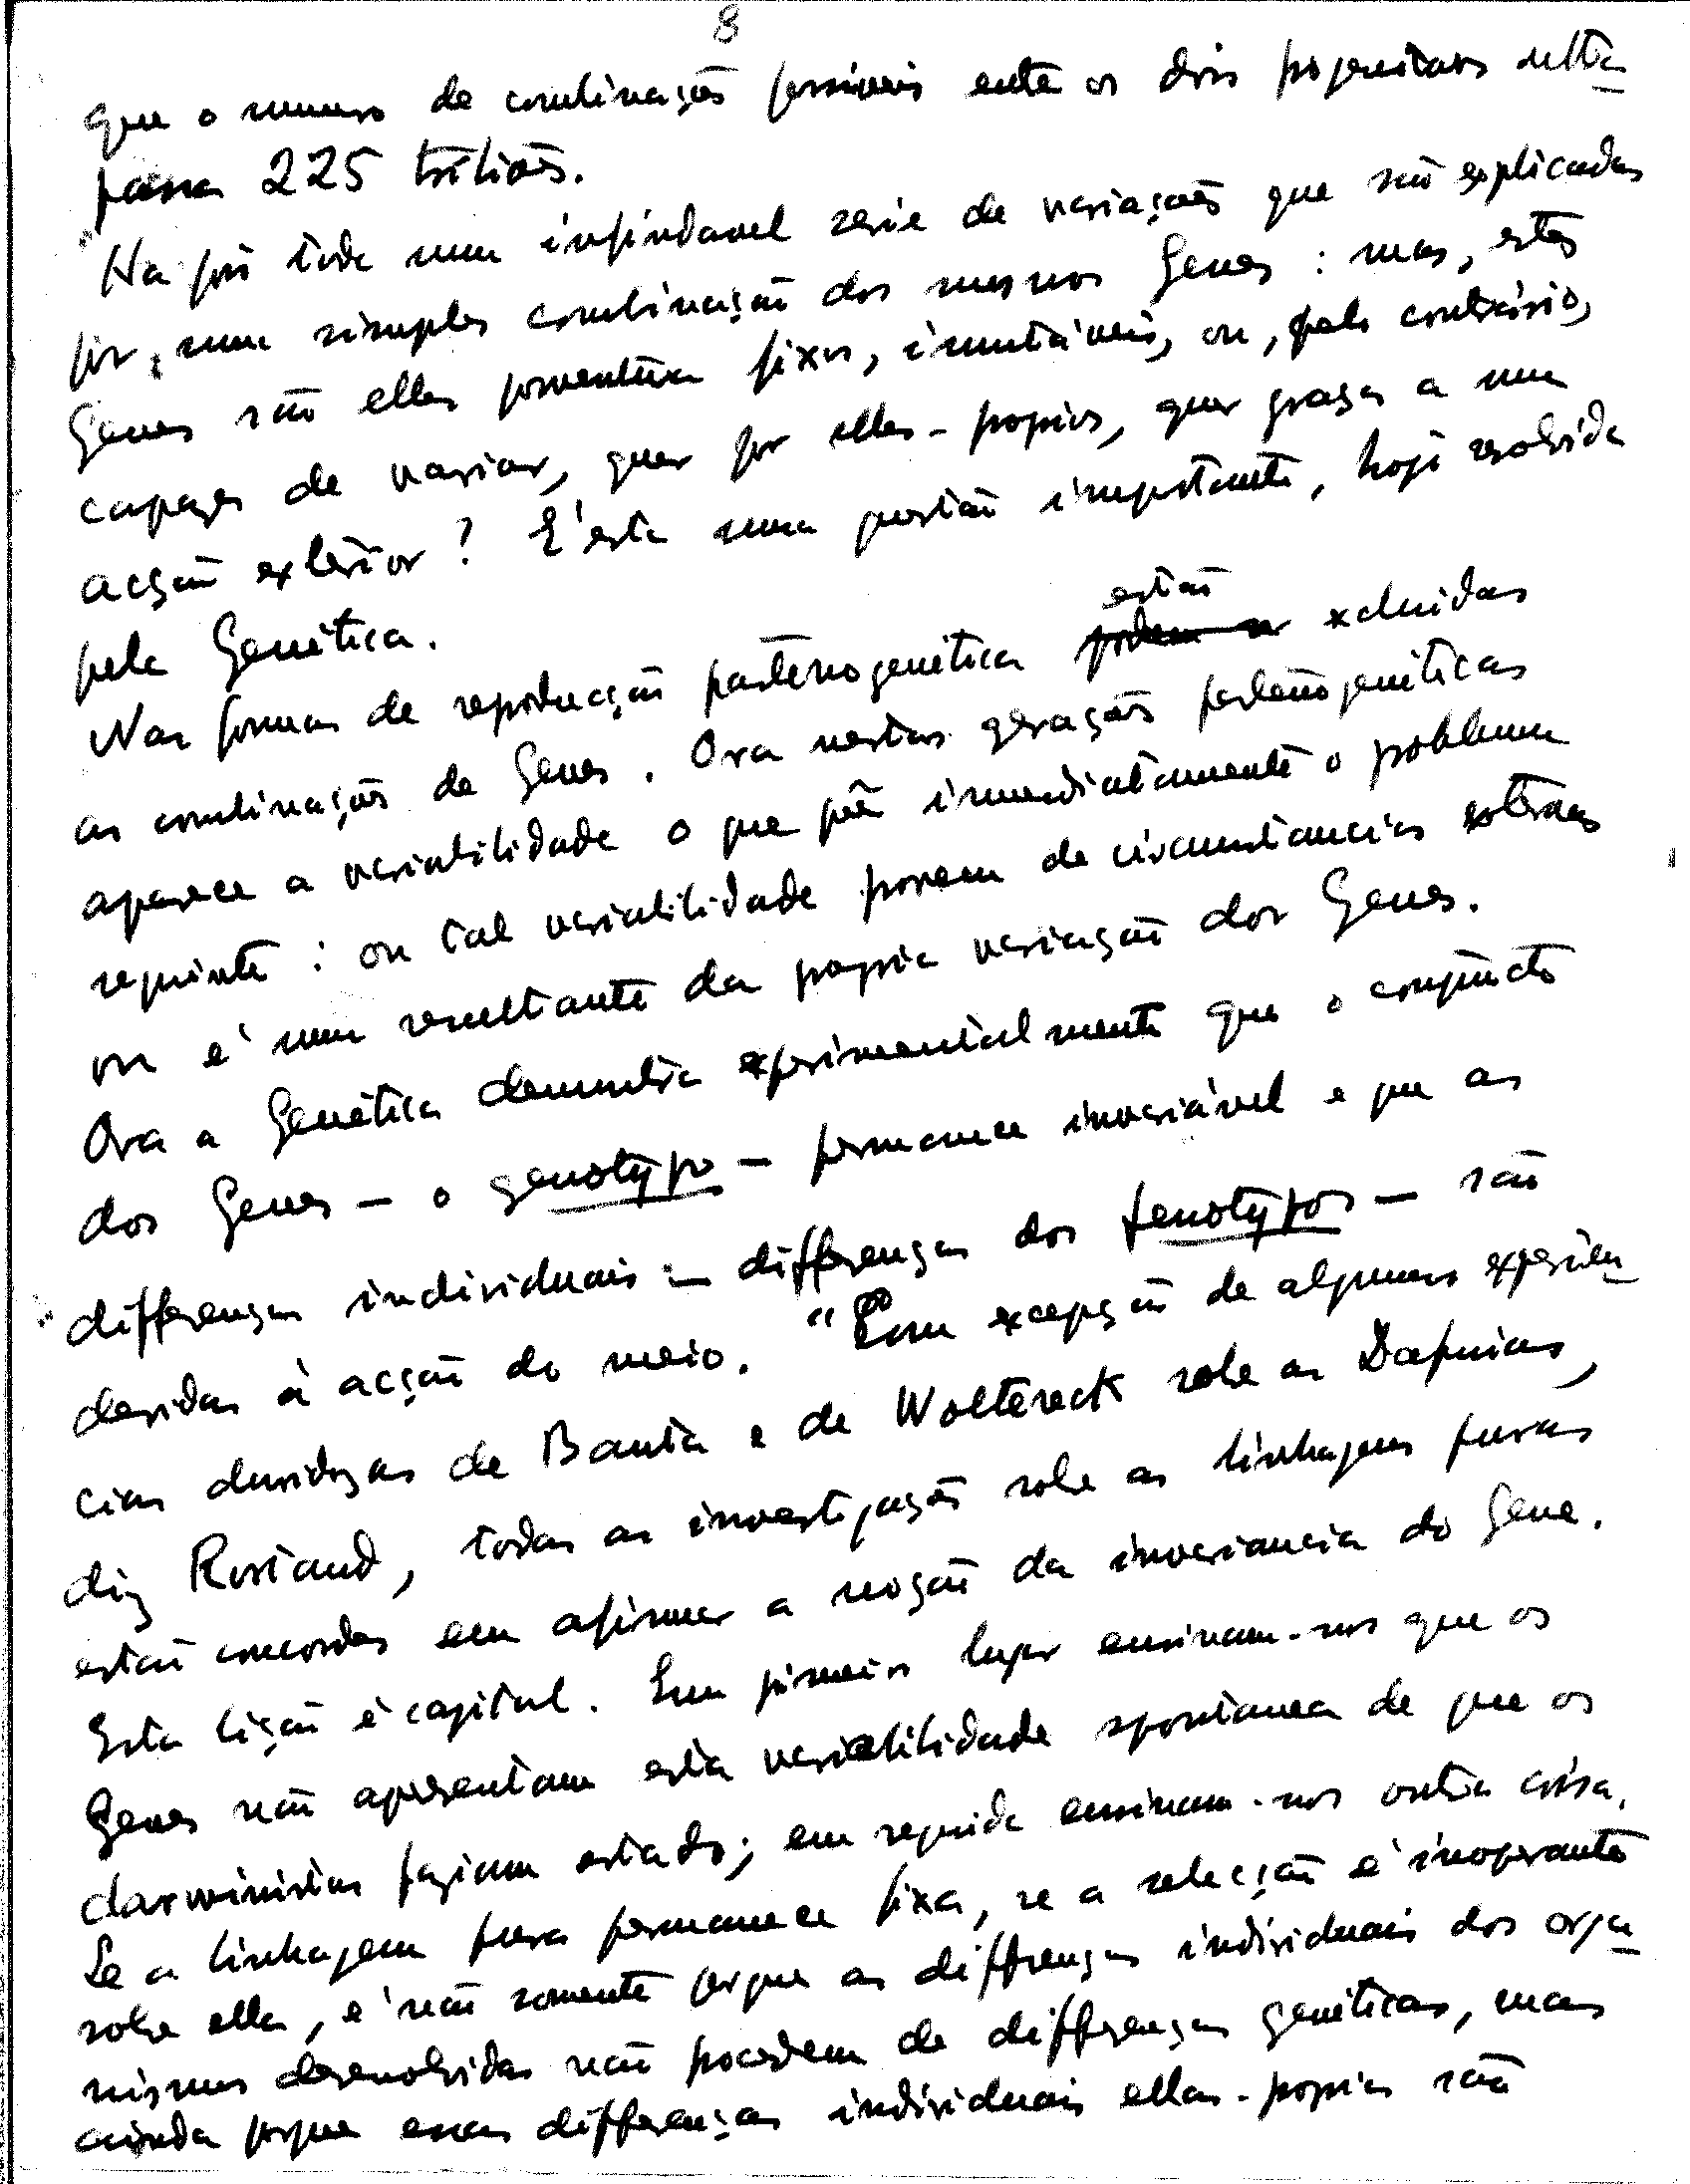 8
que o numero de combinações possiveis entre os dois progenitores ultra-
passa 225 triliões.
Ha pois toda uma infindavel serie de variações que são explicadas
por uma simples combinação dos mesmos Genes: mas, estes
Genes são elles porventura fixos, imutáveis, ou, pelo contrário,
capazes de variar, quer por elles-proprios, quer graças a uma
acção exterior? E' esta uma questão importante, hoje resolvida
pela Genética.
Nas formas de reprodução partenogenética podem ser estão excluidas
as combinações de Genes. Ora nestas gerações partenogenéticas
aparece a variabilidade o que põe immediatamente o problema
seguinte: ou tal variabilidade provem de circumstancias externas
ou é uma resultante da propria variação dos Genes.
Ora a Genética demonstra experimentalmente que o conjuncto
dos Genes — o genotypo — permanece invariável e que as
differenças individuais — differenças dos fenotypos — são
devidas à acção do meio. "Com excepção de algumas experien-
cias duvidosas de Banta e de Woltereck sobre as Dafnias,
diz Rostand, todas as investigações sobre as linhagens puras
estão concordes em afirmar a noção da invariancia do Gene.
Esta lição é capital. Em primeiro lugar ensinam-nos que os
Genes não apresentam esta variabilidade espontanea de que os
darwinistas faziam estado; em seguida ensinam-nos outra coisa.
Se a linhagem pura permanece fixa, se a selecção é inoperante
sobre ella, é não somente porque as differenças individuais dos orga-
nismos desenvolvidos não procedem de differenças genéticas, mas
ainda porque essas differenças individuais ellas-proprias são